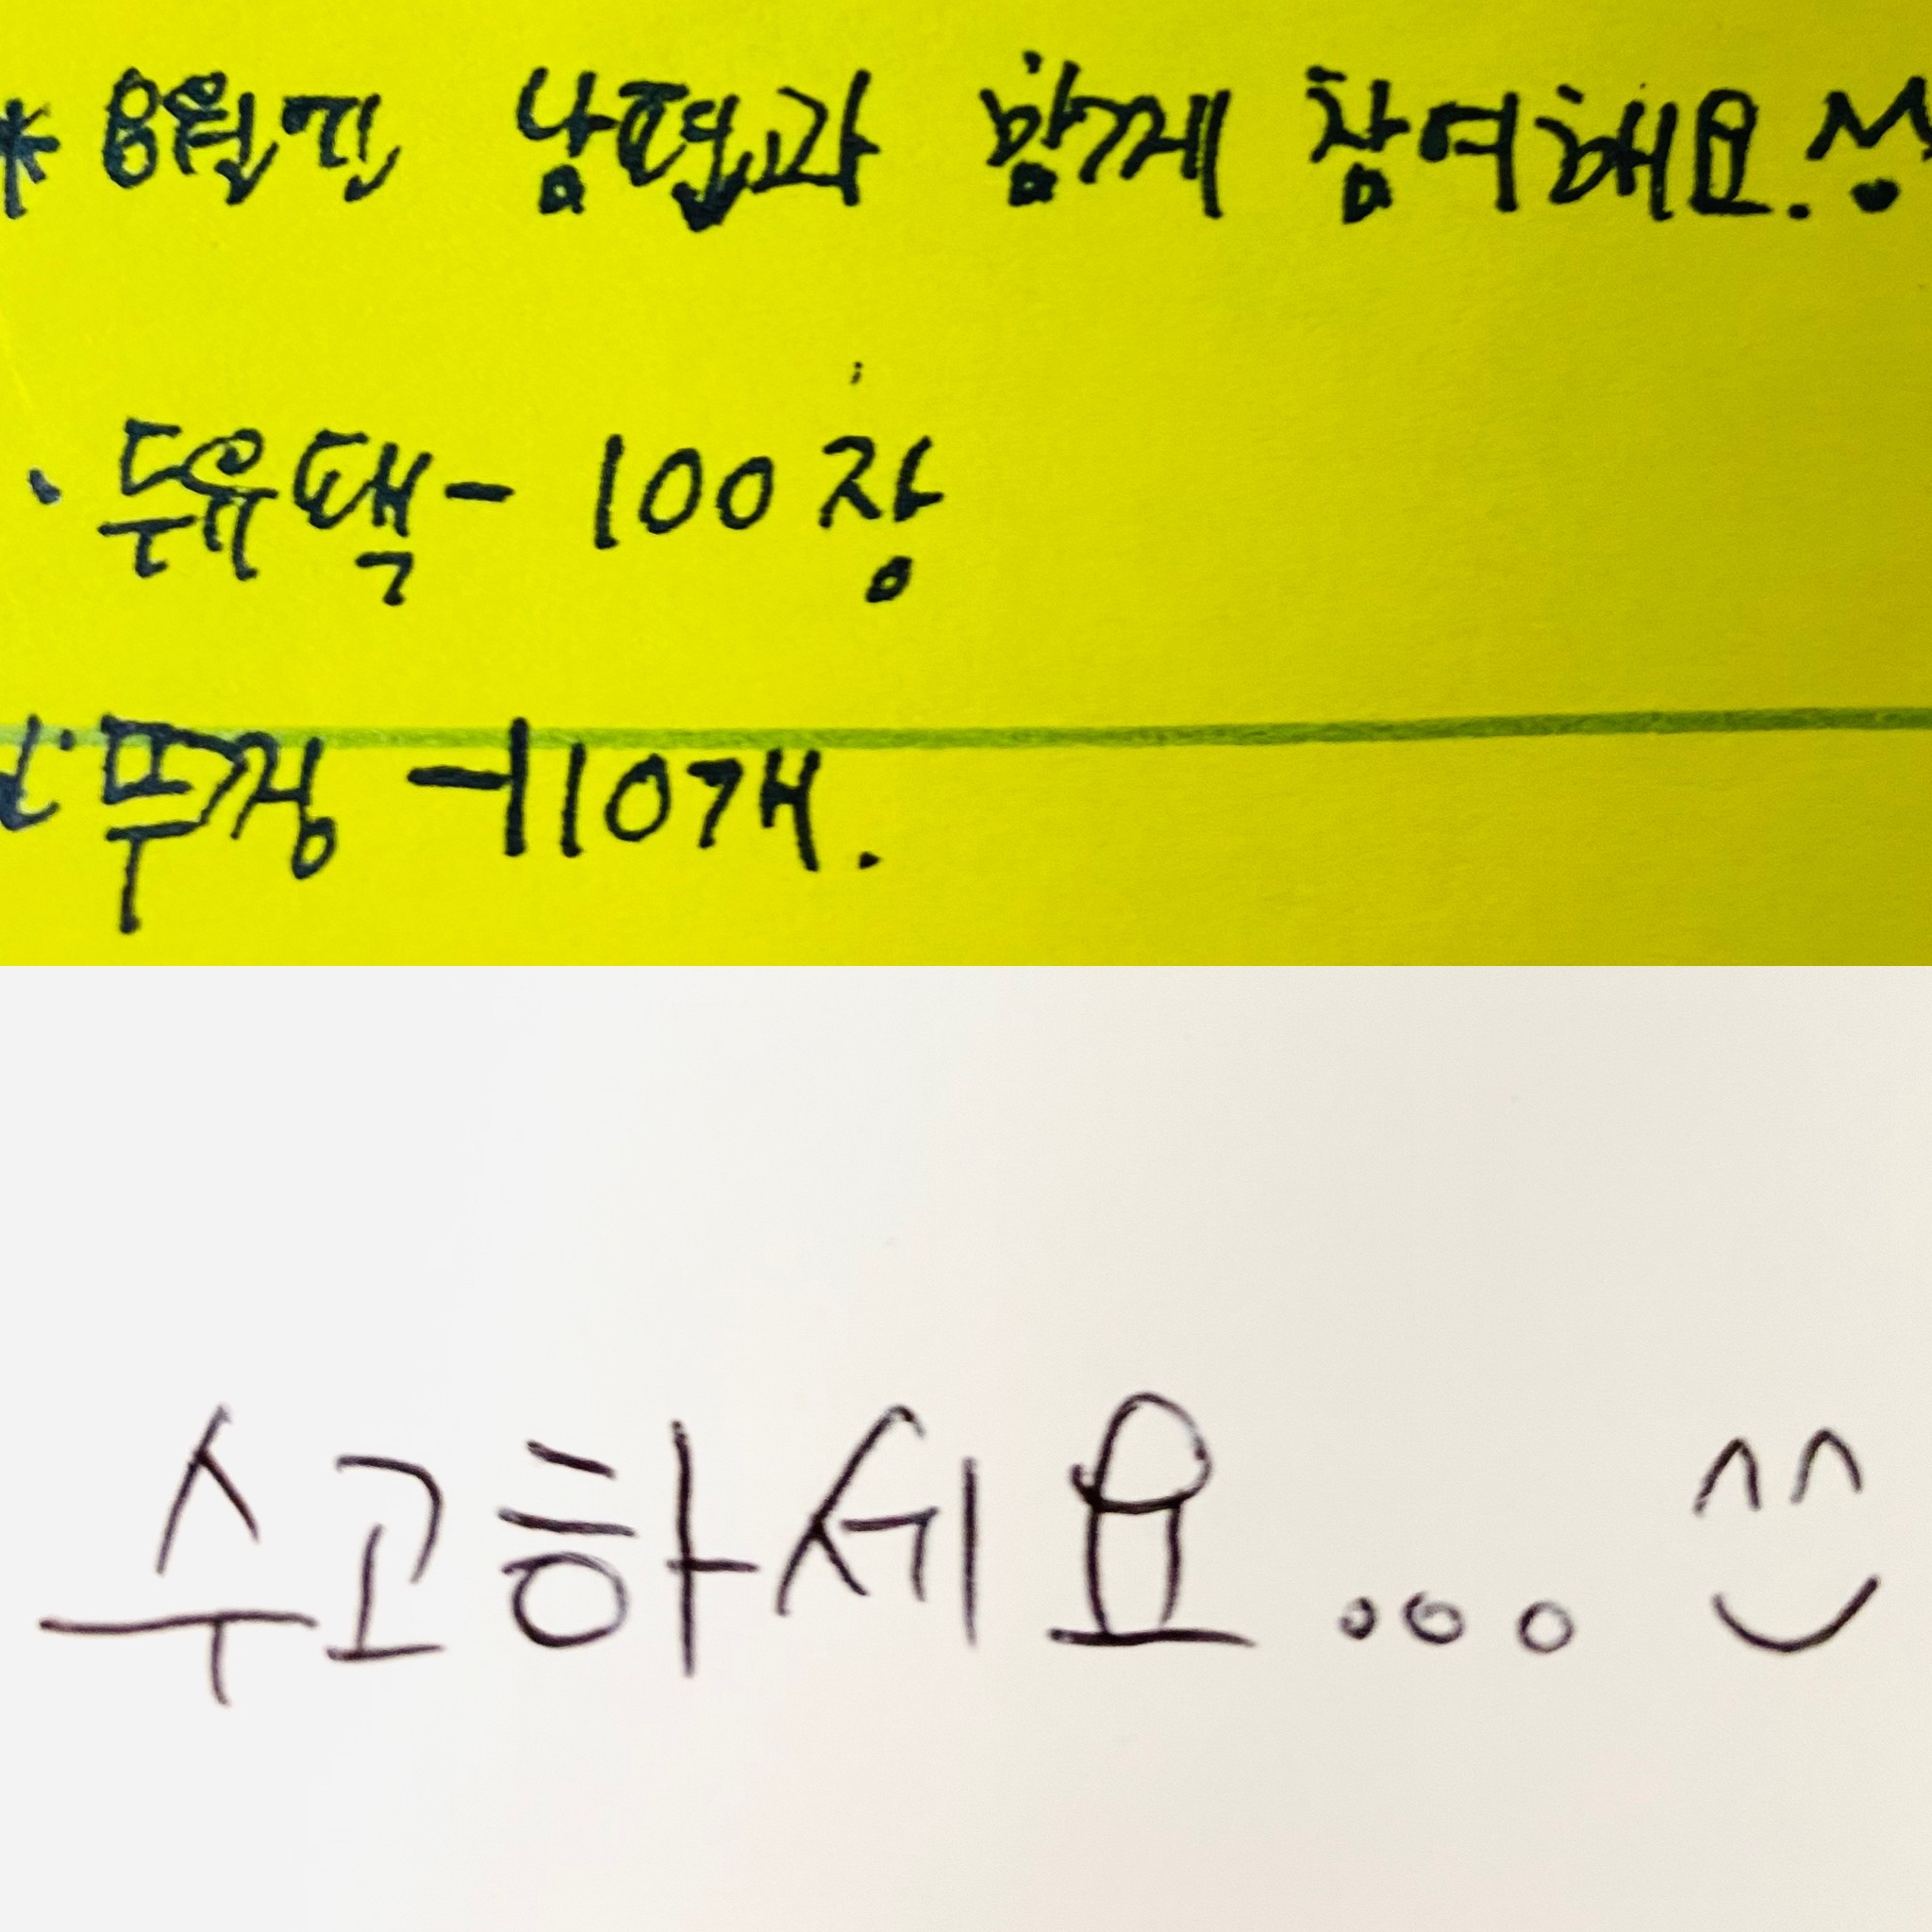 * 8월긴 남편과 함께 참여해요.^^
· 두유택 - 100장
뚜껑 - 110개.
수고하세요... ^^